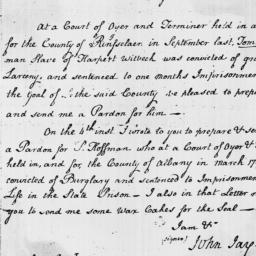 At a Court of Oyer and Terminer held in a
for the County of Rensselaer in September last, Tom
man Slave of Harpert Witbeck was convicted of gr
Larceny, and sentenced to one months Imprisonmen
the Goal of the said County be pleased to prepa
and send me a Pardon for him —
On the 4th inst I wrote to you to prepare & se
a Pardon for Hoffman who at a Court of Oyer & 
held in, and for, the County of Albany in march 17
convicted of Burglary and sentenced to Imprisonmen
Life in the State Prison — I also in that Letter
you to send me some War Cakes for the Seal —
I am &c
(signed) John Jay